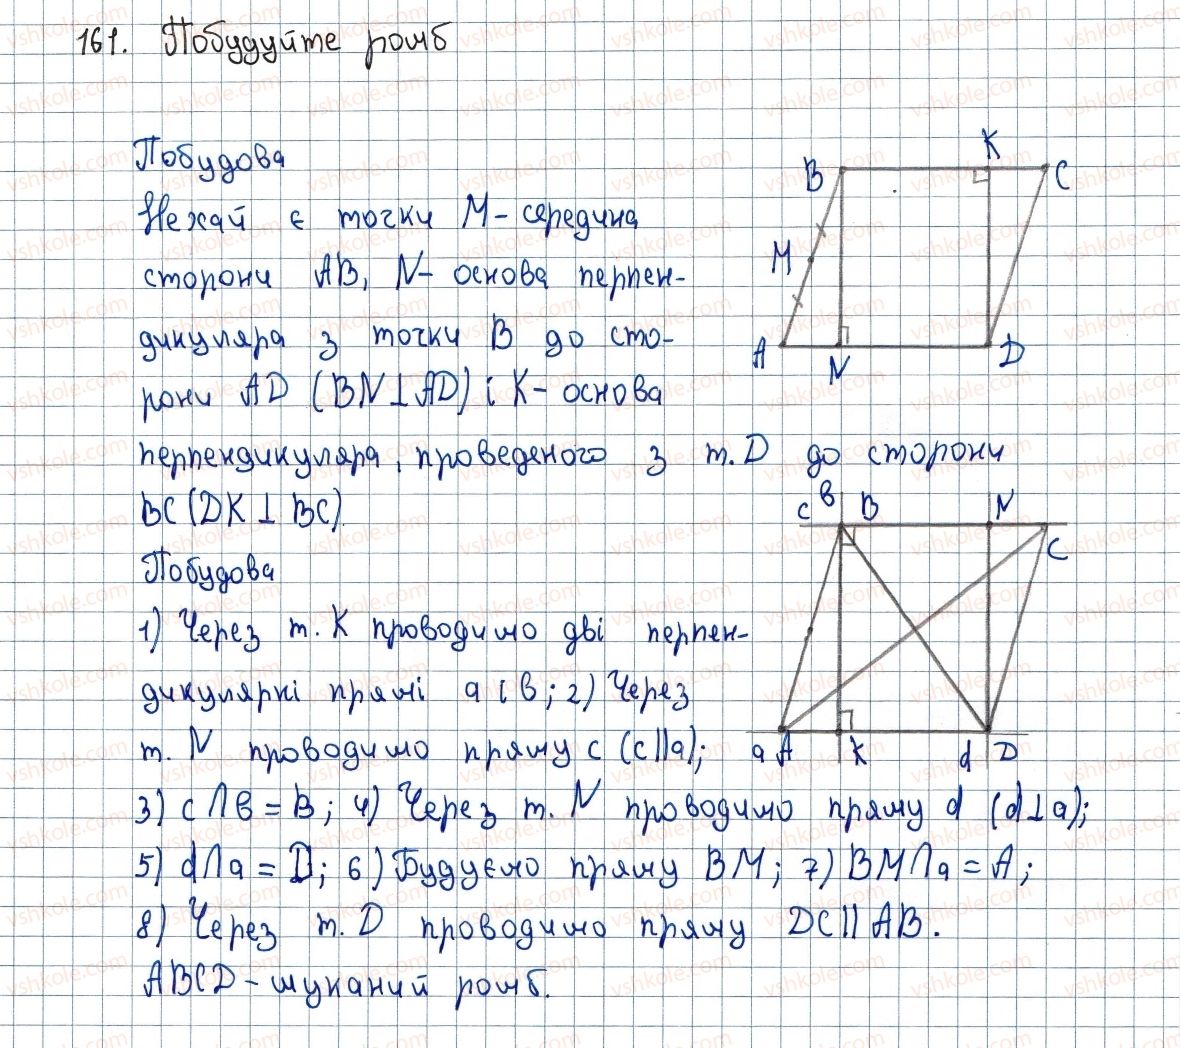 161. Побудуйте ромб
Побудова
Нехай є точки M - середина
сторони AB, N - основа перпен-
дикуляра з точки B до сто-
рони AD (BN⊥AD) і K - основа
перпендикуляра, проведеного з т. D до сторони
BC (DK ⊥ BC)
B K C
M
A N D
Побудова
1) Через т. K проводимо дві перпен-
дикулярні прямі a і b; 2) Через
т. N проводимо пряму c (c||a);
3) c∩b = B; 4) Через т. N проводимо пряму d (d⊥a);
5) d∩a = D; 6) Будуємо пряму BM; 7) BM∩a = A;
8) Через т. D проводимо пряму DC || AB.
ABCD - шуканий ромб.
c b B N
C
a A K d D
vshkole.com